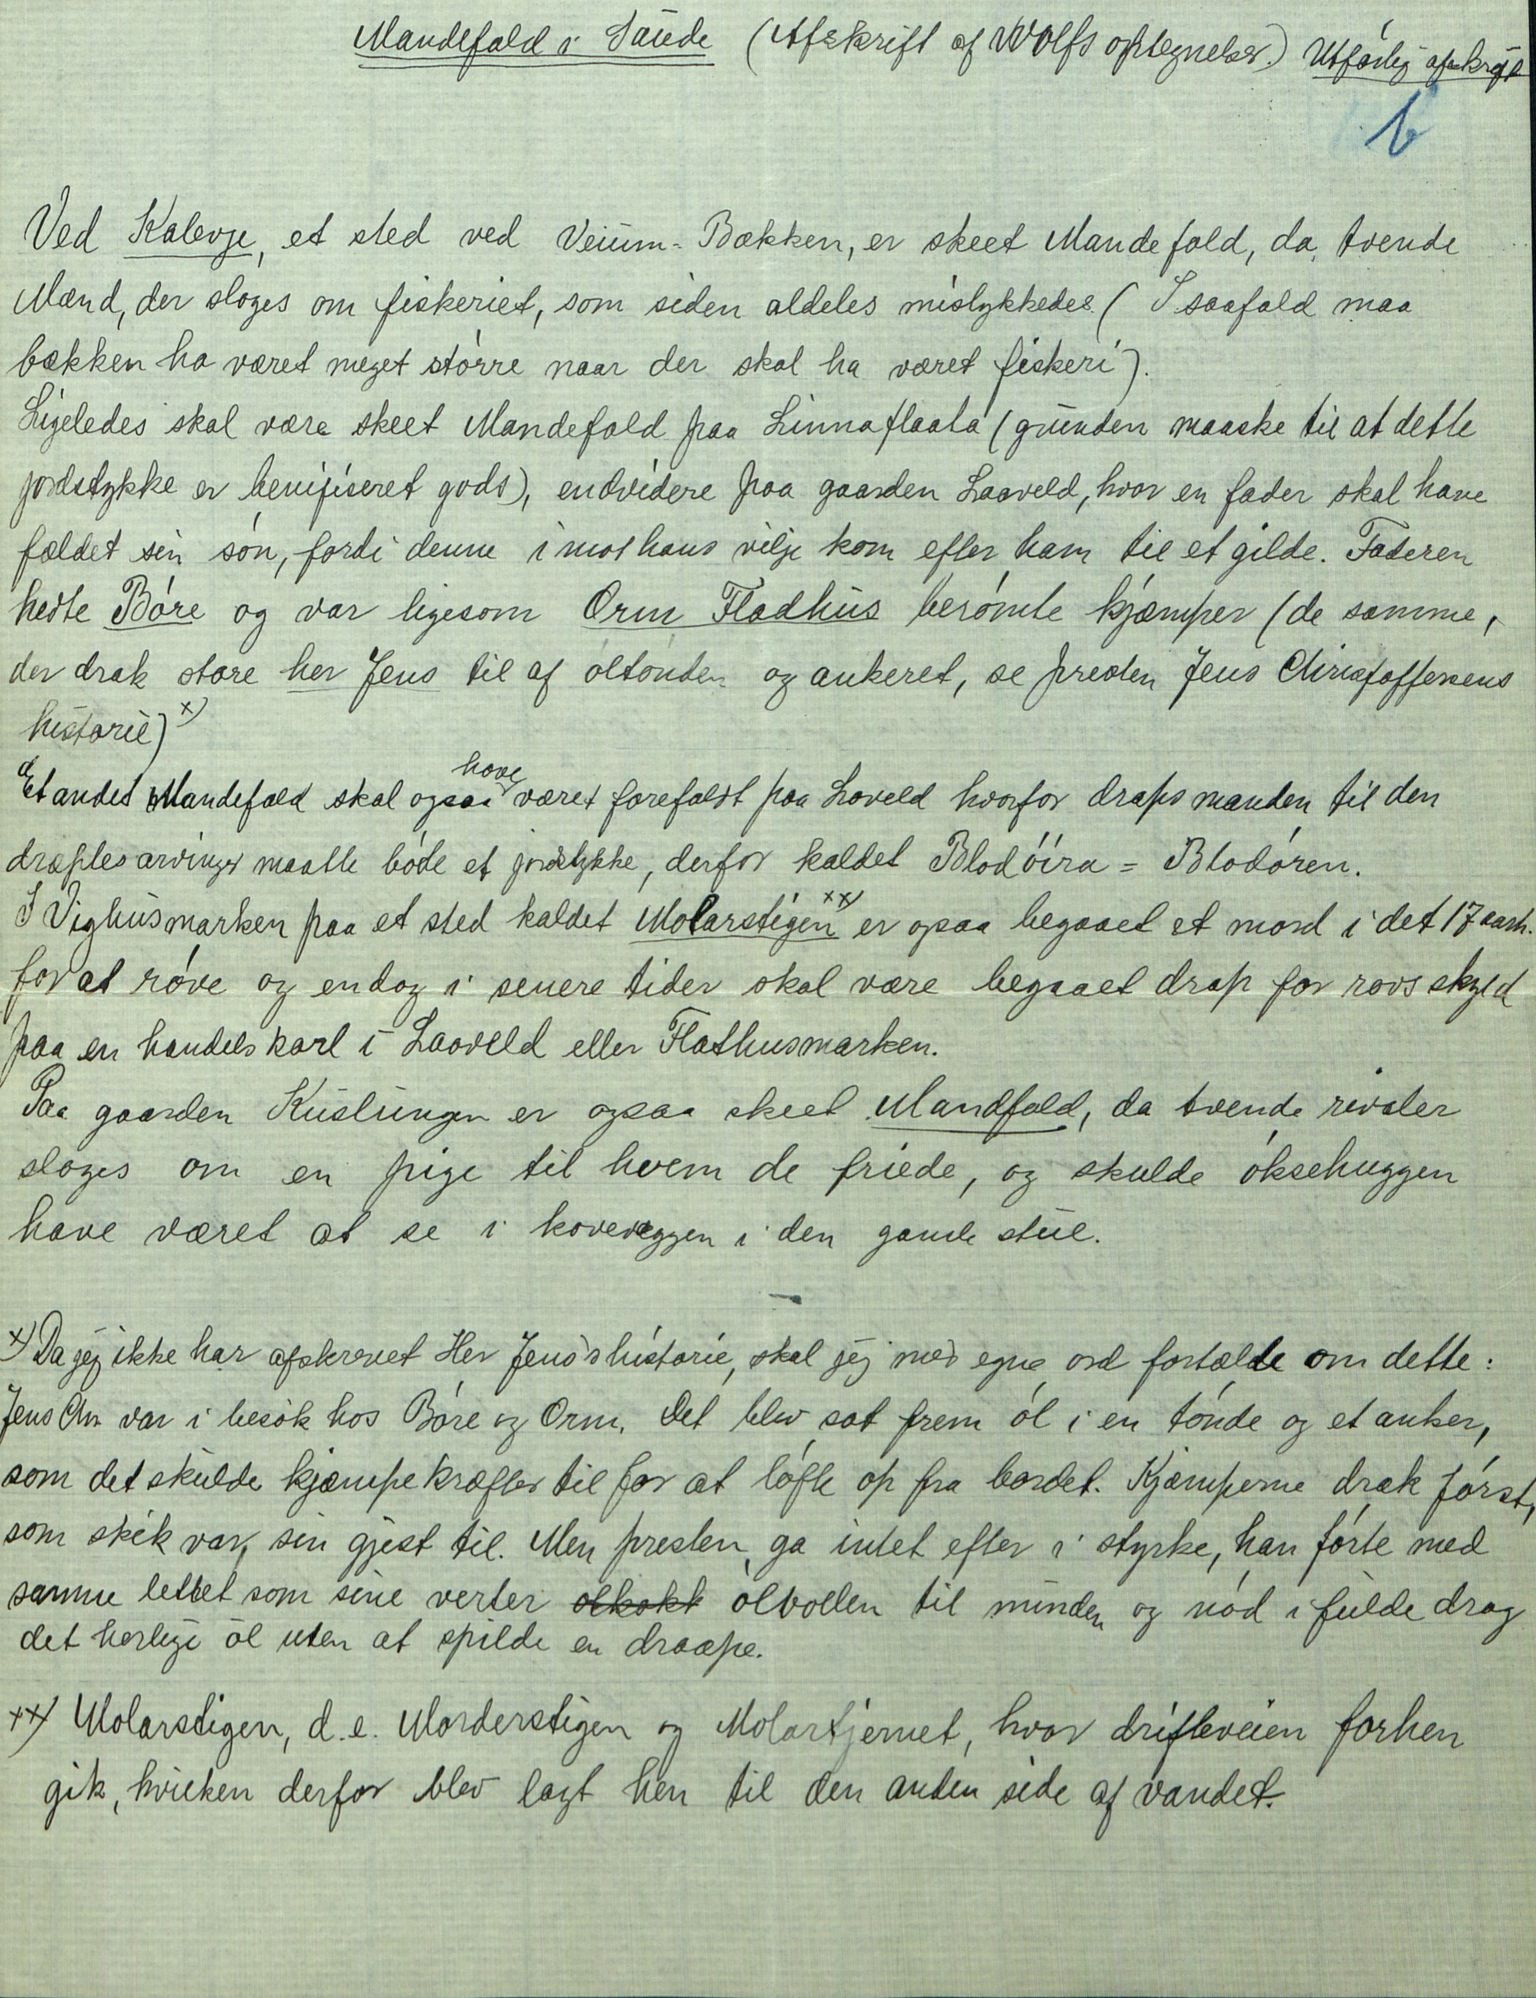 Mandefald i Saude (Afskrift af Wolfs optegnelser.) Utførlig afskrift
b
Ved Kalevje, et sted ved Veium-Bækken, er skeet Mandefald, da tvende
Mænd, der sloges om fiskeriet, som siden aldeles mislykkedes (I saafald maa
bækken ha været meget större naar der skal ha været fiskeri).
Ligeledes skal være skeet Mandefald paa Linnaflaata (grunden maaske til at dette
jordstykke er benifiseret gods), endvidere paa gaarden Laaveld, hvor en fader skal have
fældet sin sön, fordi denne imot hans vilje kom efter ham til et gilde. Faderen
hedte Böre og var ligesom Orm Fladhus berömte kjæmper (de samme,
der drak store her Jens til af öltönden og ankeret, se presten Jens Christoffersens
historie) x)
Et andet Mandefald skal ogsaa have været forefaldt paa Loveld hvorfor drapsmanden til den
dræptes arvinger maatte böde et jordstykke, derfor kaldet Blodöira = Blodören.
I Vighusmarken paa et sted kaldet Molarstigen xx) er ogsaa begaaet et mord i det 17 aarh.
for at röve og endog i senere tider skal være begaaet drap for rovs skyld
paa en handelskarl i Laaveld eller Flathusmarken.
Paa gaarden Kuslungen er ogsaa skeet Mandfald, da tvende rivaler
sloges om en pige til hvem de friede, og skulde öksehuggen
have været at se i koveveggen i den gamle stue.
x) Da jeg ikke har afskrevet Her Jens's historie, skal jeg med egne ord fortælde om dette:
Jens Chr. var i besök hos Böre og Orm. Det blev sat frem öl i en tönde og et anker,
som det skulde kjæmpekræfter til for at löfte op fra bordet. Kjæmperne drak först,
som skik var, sin gjest til. Men presten ga intet efter i styrke, han förte med
samme lettet som sine verter ölbollen til munden og nöd i fulde drag
det herlige öl uten at spilde en draape.
xx) Molarstigen, d.e. Morderstigen og Molartjernet, hvor drifteveien forhen
gik, hvilken derfor blev lagt hen til den anden side af vandet.